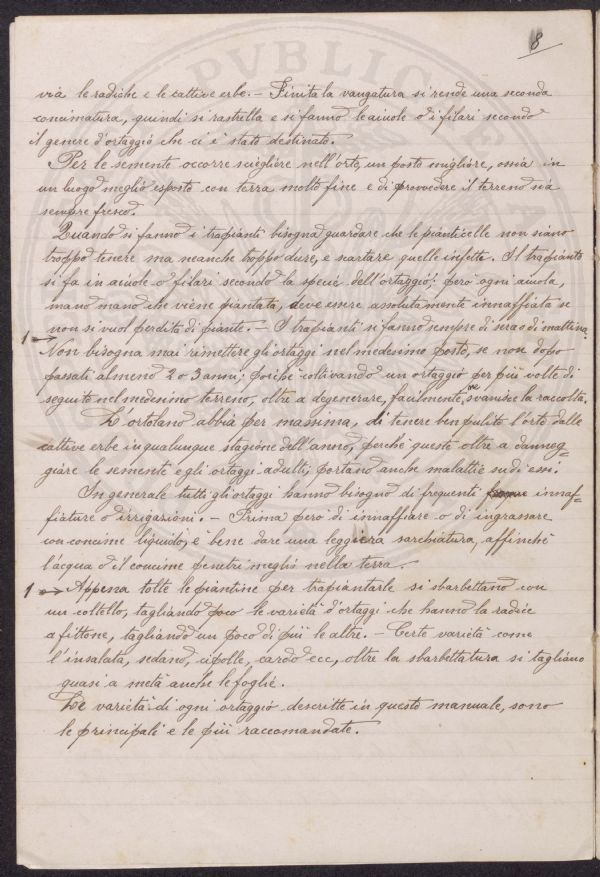 8
via le radiche e le cattive erbe. – Finita la vangatura si rende una seconda
concimatura, quindi si rastrella e si fanno le aiuole o i filari secondo
il genere d'ortaggio che ci è stato destinato.
Per le semente occorre scieglière nell'orto, un posto migliore, ossia in
un luogo meglio esposto con terra molto fine e di provvedere il terreno sia
sempre fresco.
Quando si fanno i trapianti bisogna guardare che le pianticelle non siano
troppo tenere ma neanche troppo dure, e scartare quelle infette. Il trapianto
si fa in aiuole o filari secondo la specie dell'ortaggio; però ogni aiuola,
mano mano che viene piantata, deve essere assolutamente innaffiata se
non si vuol perdita di piante. – I trapianti si fanno sempre di sera o di mattina.
1 Non bisogna mai rimettere gli ortaggi nel medesimo posto, se non dopo
passati almeno 2 o 3 anni; poichè coltivando un ortaggio per più volte di
seguito nel medesimo terreno, oltre a degenerare, facilmente ne svanisce la raccolta.
L'ortolano abbia per massima, di tenere ben pulito l'orto dalle
cattive erbe in qualunque stagione dell'anno, perchè queste oltre a danneg=
giare le semente e gli ortaggi adulti, portano anche malattie su di essi.
In generale tutti gli ortaggi hanno bisogno di frequenti innaf=
fiature o irrigazioni. – Prima però di innaffiare o di ingrassare
con concime liquido, è bene dare una leggiera sarchiatura, affinchè
l'acqua o il concime penetri meglio nella terra.
1 Appena tolte le piantine per trapiantarle si sbarbettano con
un coltello, tagliando poco le varietà d'ortaggi che hanno la radice
a fittone, tagliando un poco di più le altre. – Certe varietà come
l'insalata, sedano, cipolle, cardo ecc, oltre la sbarbettatura si tagliano
quasi a metà anche le foglie.
Le varietà di ogni ortaggio descritte in questo manuale, sono
le principali e le più raccomandate.
PVBLIC